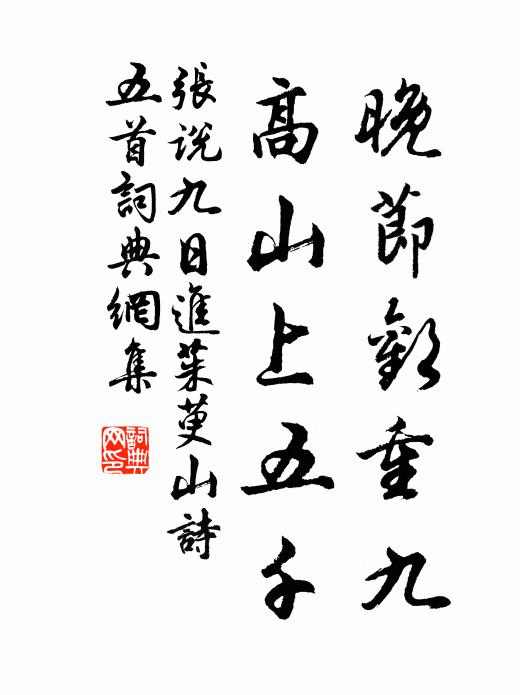 晚節歡重九
高山上五千
張說九日進茱萸山詩
五首詞典網集
詞典
网印